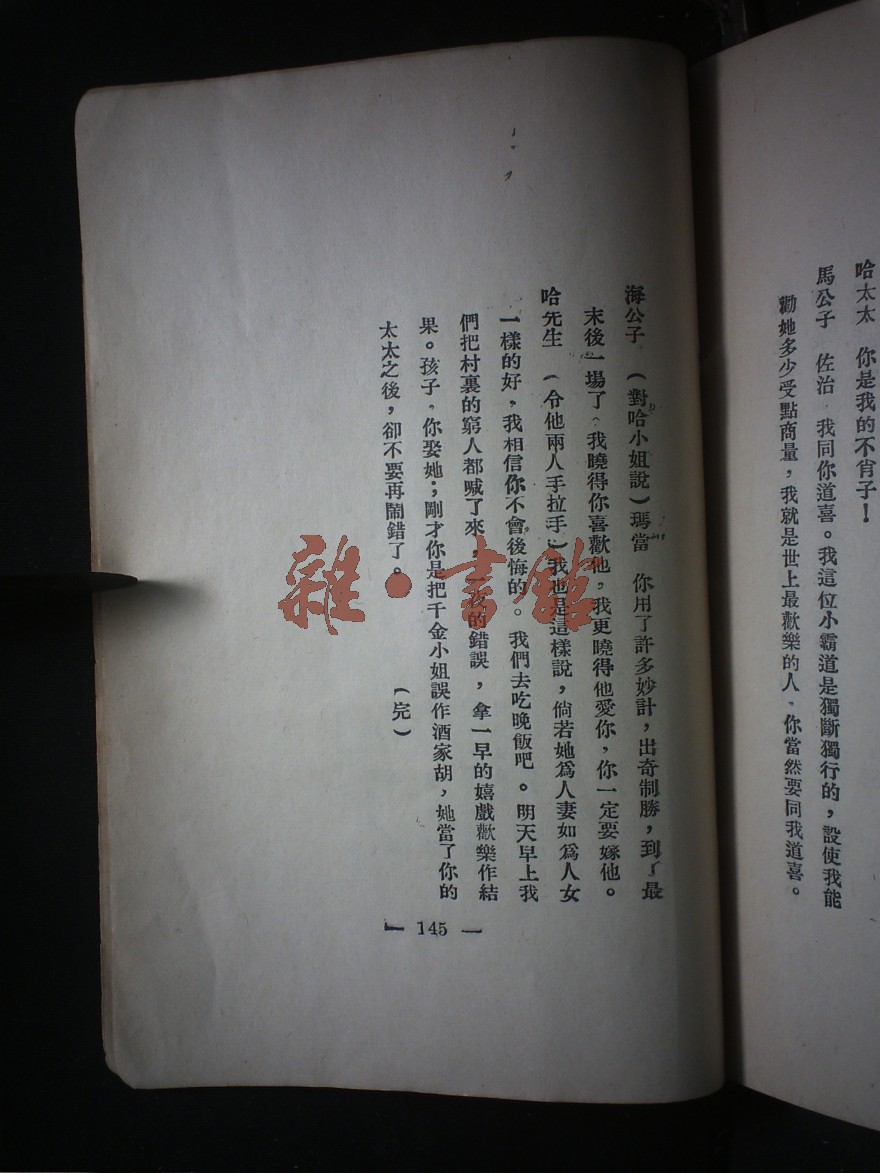 哈太太　你是我的不肖子！
馬公子　佐治，我同你道喜。我這位小霸道是獨斷獨行的，設使我能
勸她多少受點商量，我就是世上最歡樂的人，你當然要同我道喜。
海公子　(對哈小姐說)瑪當　你用了許多妙計，出奇制勝，到了最
末後一場了，我曉得你喜歡他，我更曉得他愛你，你一定要嫁他。
哈先生　(令他兩人手拉手)我也是這樣說，倘若她爲人妻如爲人女
一樣的好，我相信你不會後悔的。我們去吃晚飯吧。明天早上我
們把村裏的窮人都喊了來，一夜的錯誤，拿一早的嬉戲歡樂作結
果。孩子，你娶她，剛才你是把千金小姐誤作酒家胡，她當了你的
太太之後，卻不要再鬧錯了。　(完)
— 145 —
雜·書館